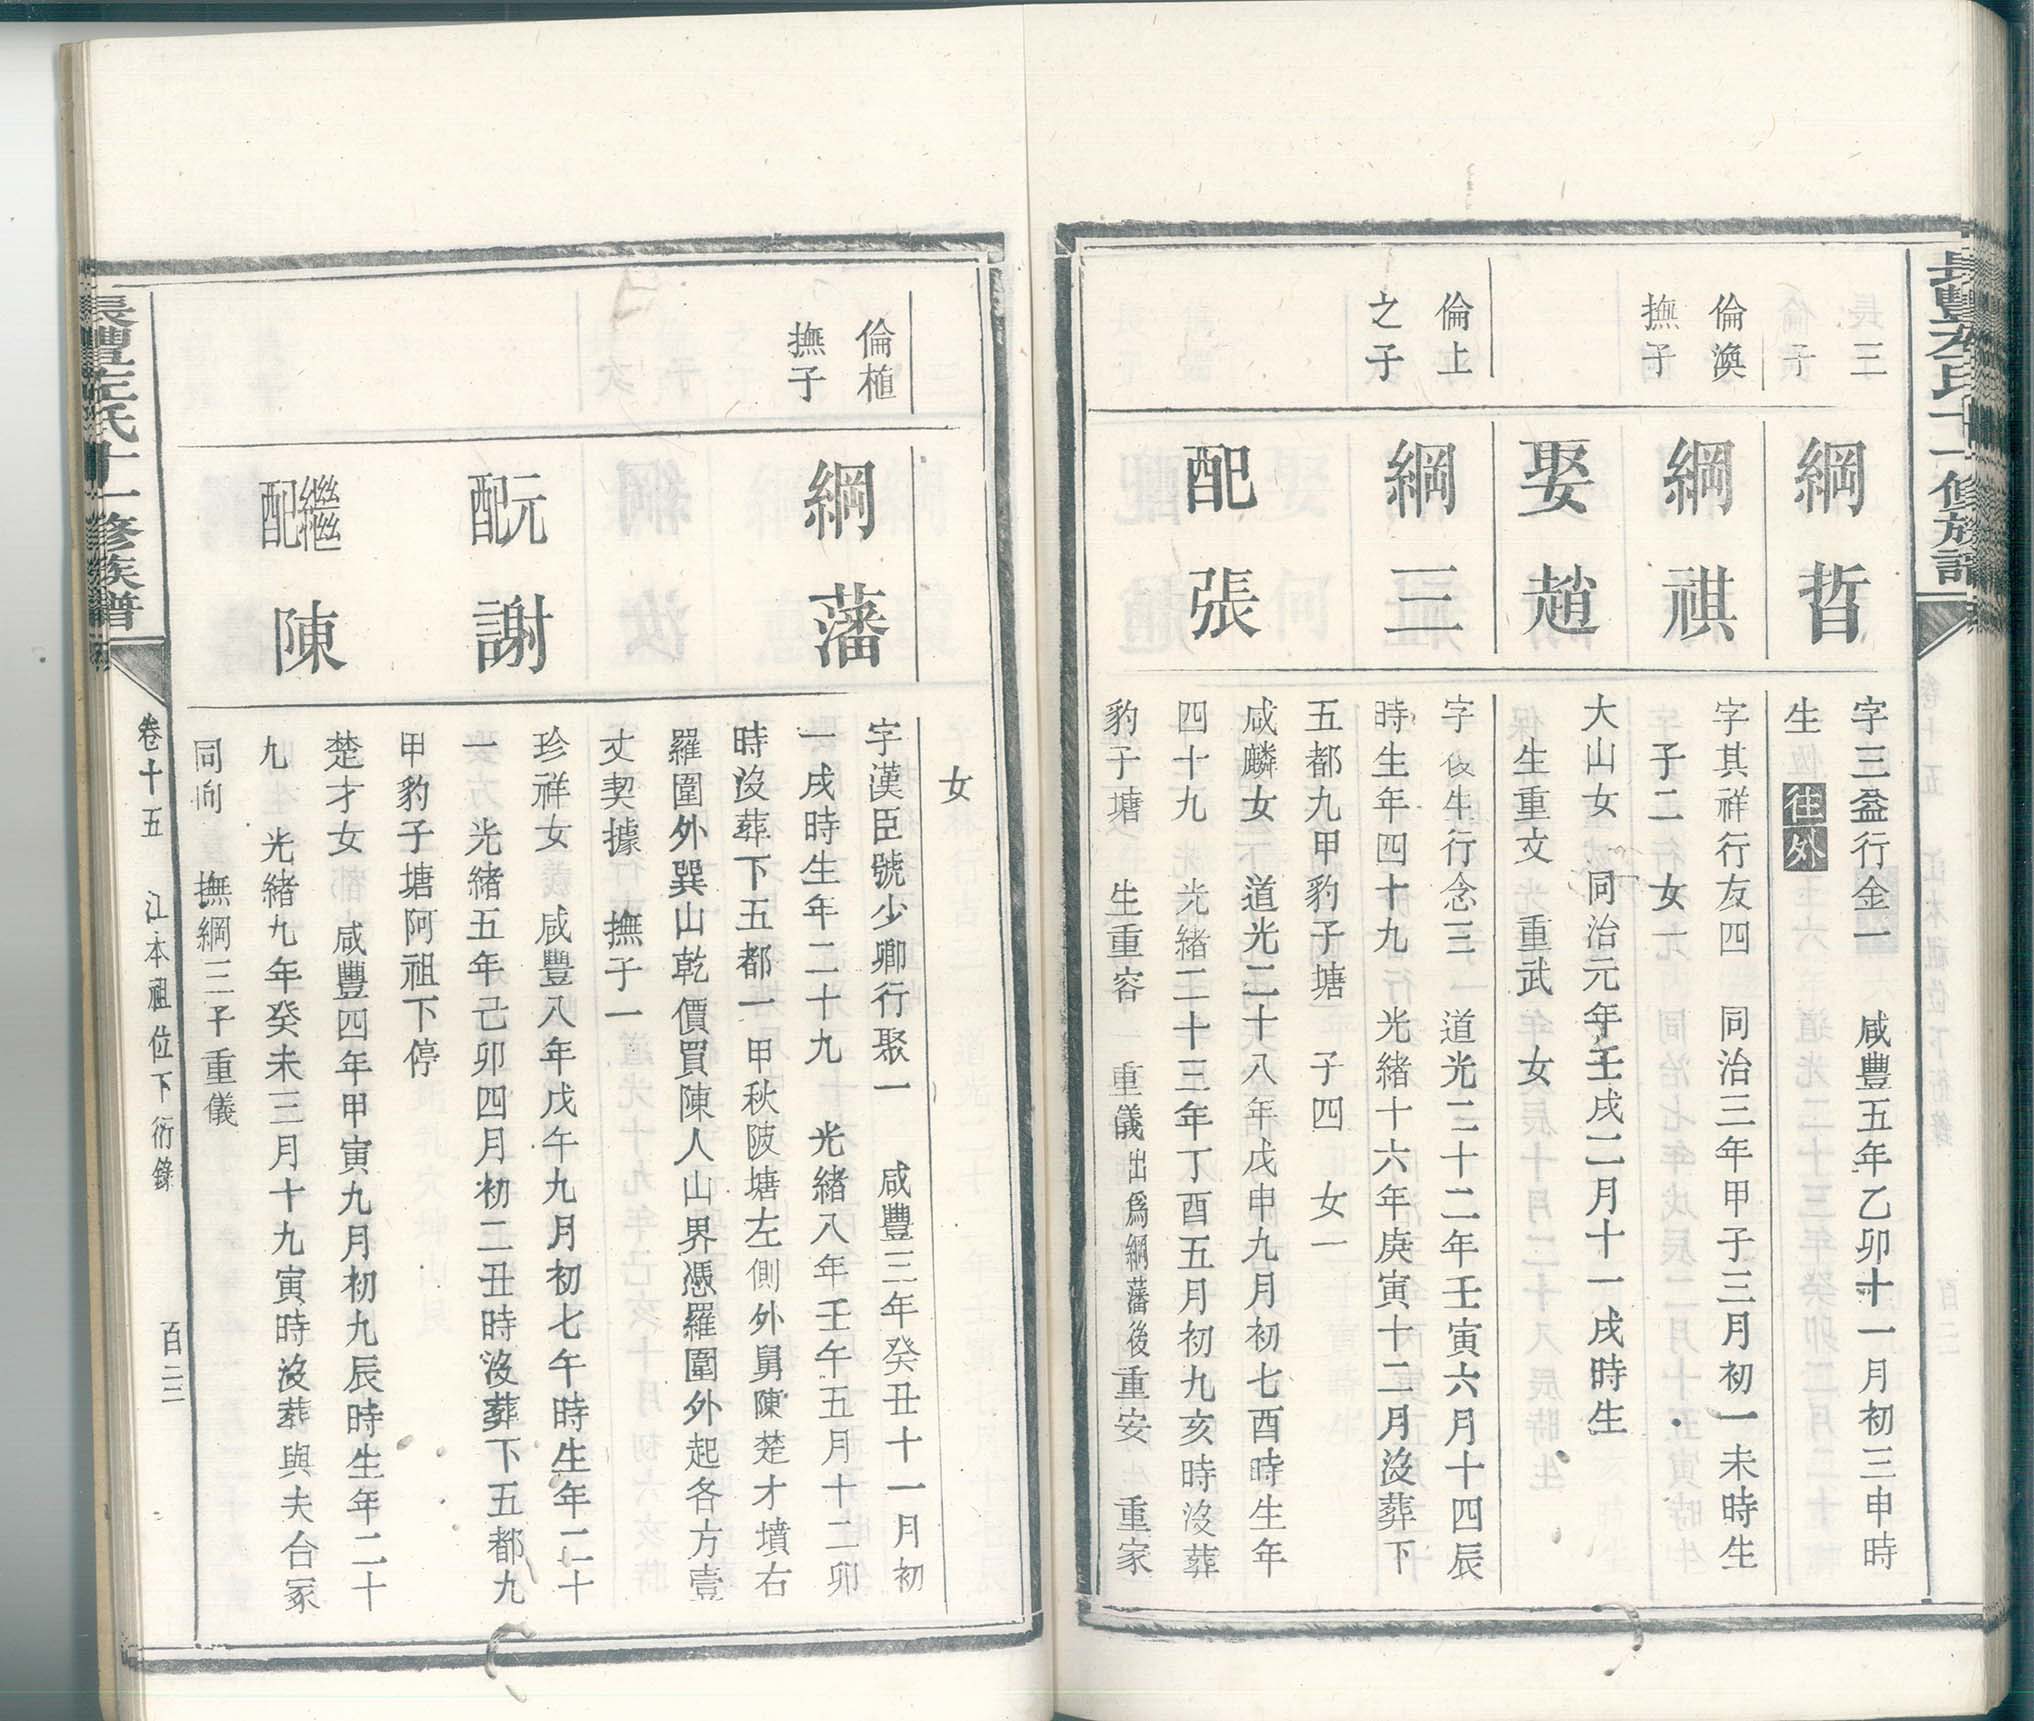 長豐左氏十一修族譜
長三
倫 子
綱哲
字三益行金一 咸豐五年乙卯十一月初三申時
生 往外
倫渙
撫子
綱祺
字其祥行友四 同治三年甲子三月初一未時生
子二 女一
娶趙
大山女 同治元年壬戌二月十一戌時生
生重文 重武 女
倫上
之子
綱三
字俊生行念三 道光二十二年壬寅六月十四辰
時生年四十九 光緒十六年庚寅十二月沒葬下
五都九甲豹子塘 子四 女一
配張
咸麟女 道光二十八年戊申九月初七酉時生年
四十九 光緒二十三年丁酉五月初九亥時沒葬
豹子塘 生重容 重儀出爲綱藩後重安 重家
女
倫植
撫子
綱藩
字漢臣號少卿行聚一 咸豐三年癸丑十一月初
一戌時生年二十九 光緒八年壬午五月十二卯
時沒葬下五都一甲秋陂塘左側外舅陳楚才墳右
羅圍外巽山乾價買陳人山界憑羅圍外起各方壹
丈契據 撫子一
元配謝
珍祥女 咸豐八年戊午九月初七午時生年二十
一 光緒五年己卯四月初二丑時沒葬下五都九
甲豹子塘阿祖下停
繼配陳
楚才女 咸豐四年甲寅九月初九辰時生年二十
九 光緒九年癸未三月十九寅時沒葬與夫合冢
同向 撫綱三子重儀
長豐左氏十一修族譜
卷十五 江本祖位下衍錄 百二三